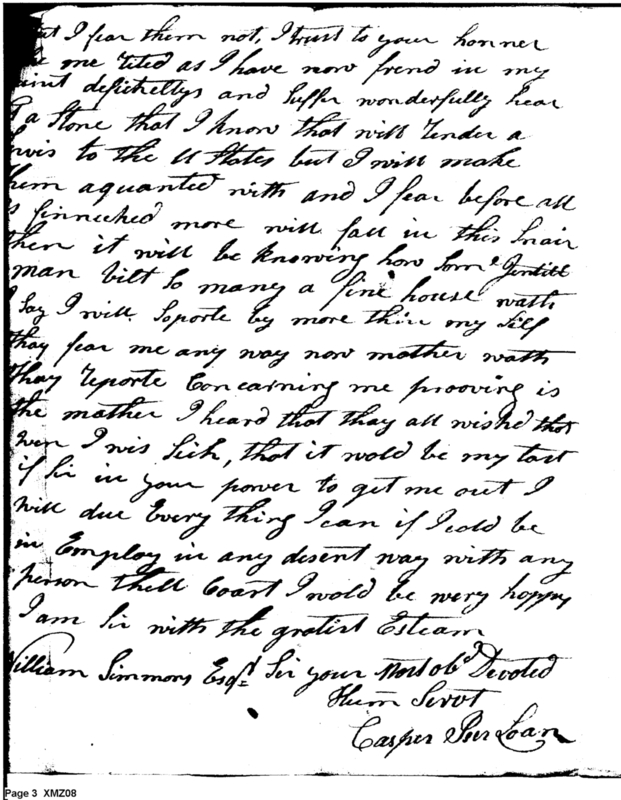 I fear them not, I trust to your honner
me as I have now frend in my
defichellys and Suffer wonderfully hear
a Stone that I know that will Render a
to the U States but I will make
aquanted with and I fear before all
finneched more will fall in this Snair
then it will be knowing how Som
man bilt So many a fine house wath
I Say I will Soporte by more thin my Self
thay fear me any way now mather wath
thay Reporte Concarning me prooving is
the mather I heard that thay all wished that
wen I wis Sick, that it wold be my last
if Sir in your power to get me out I
will due Every thing I can if I cold be
in Employ in any desent way with any
person thell Coart I wold be wery hoppy
I am Sir with the gratist Esteam
William Simmons Esqr Sir your Most obt Devoted
Hum Servt
Casper
Page 3 XMZ08